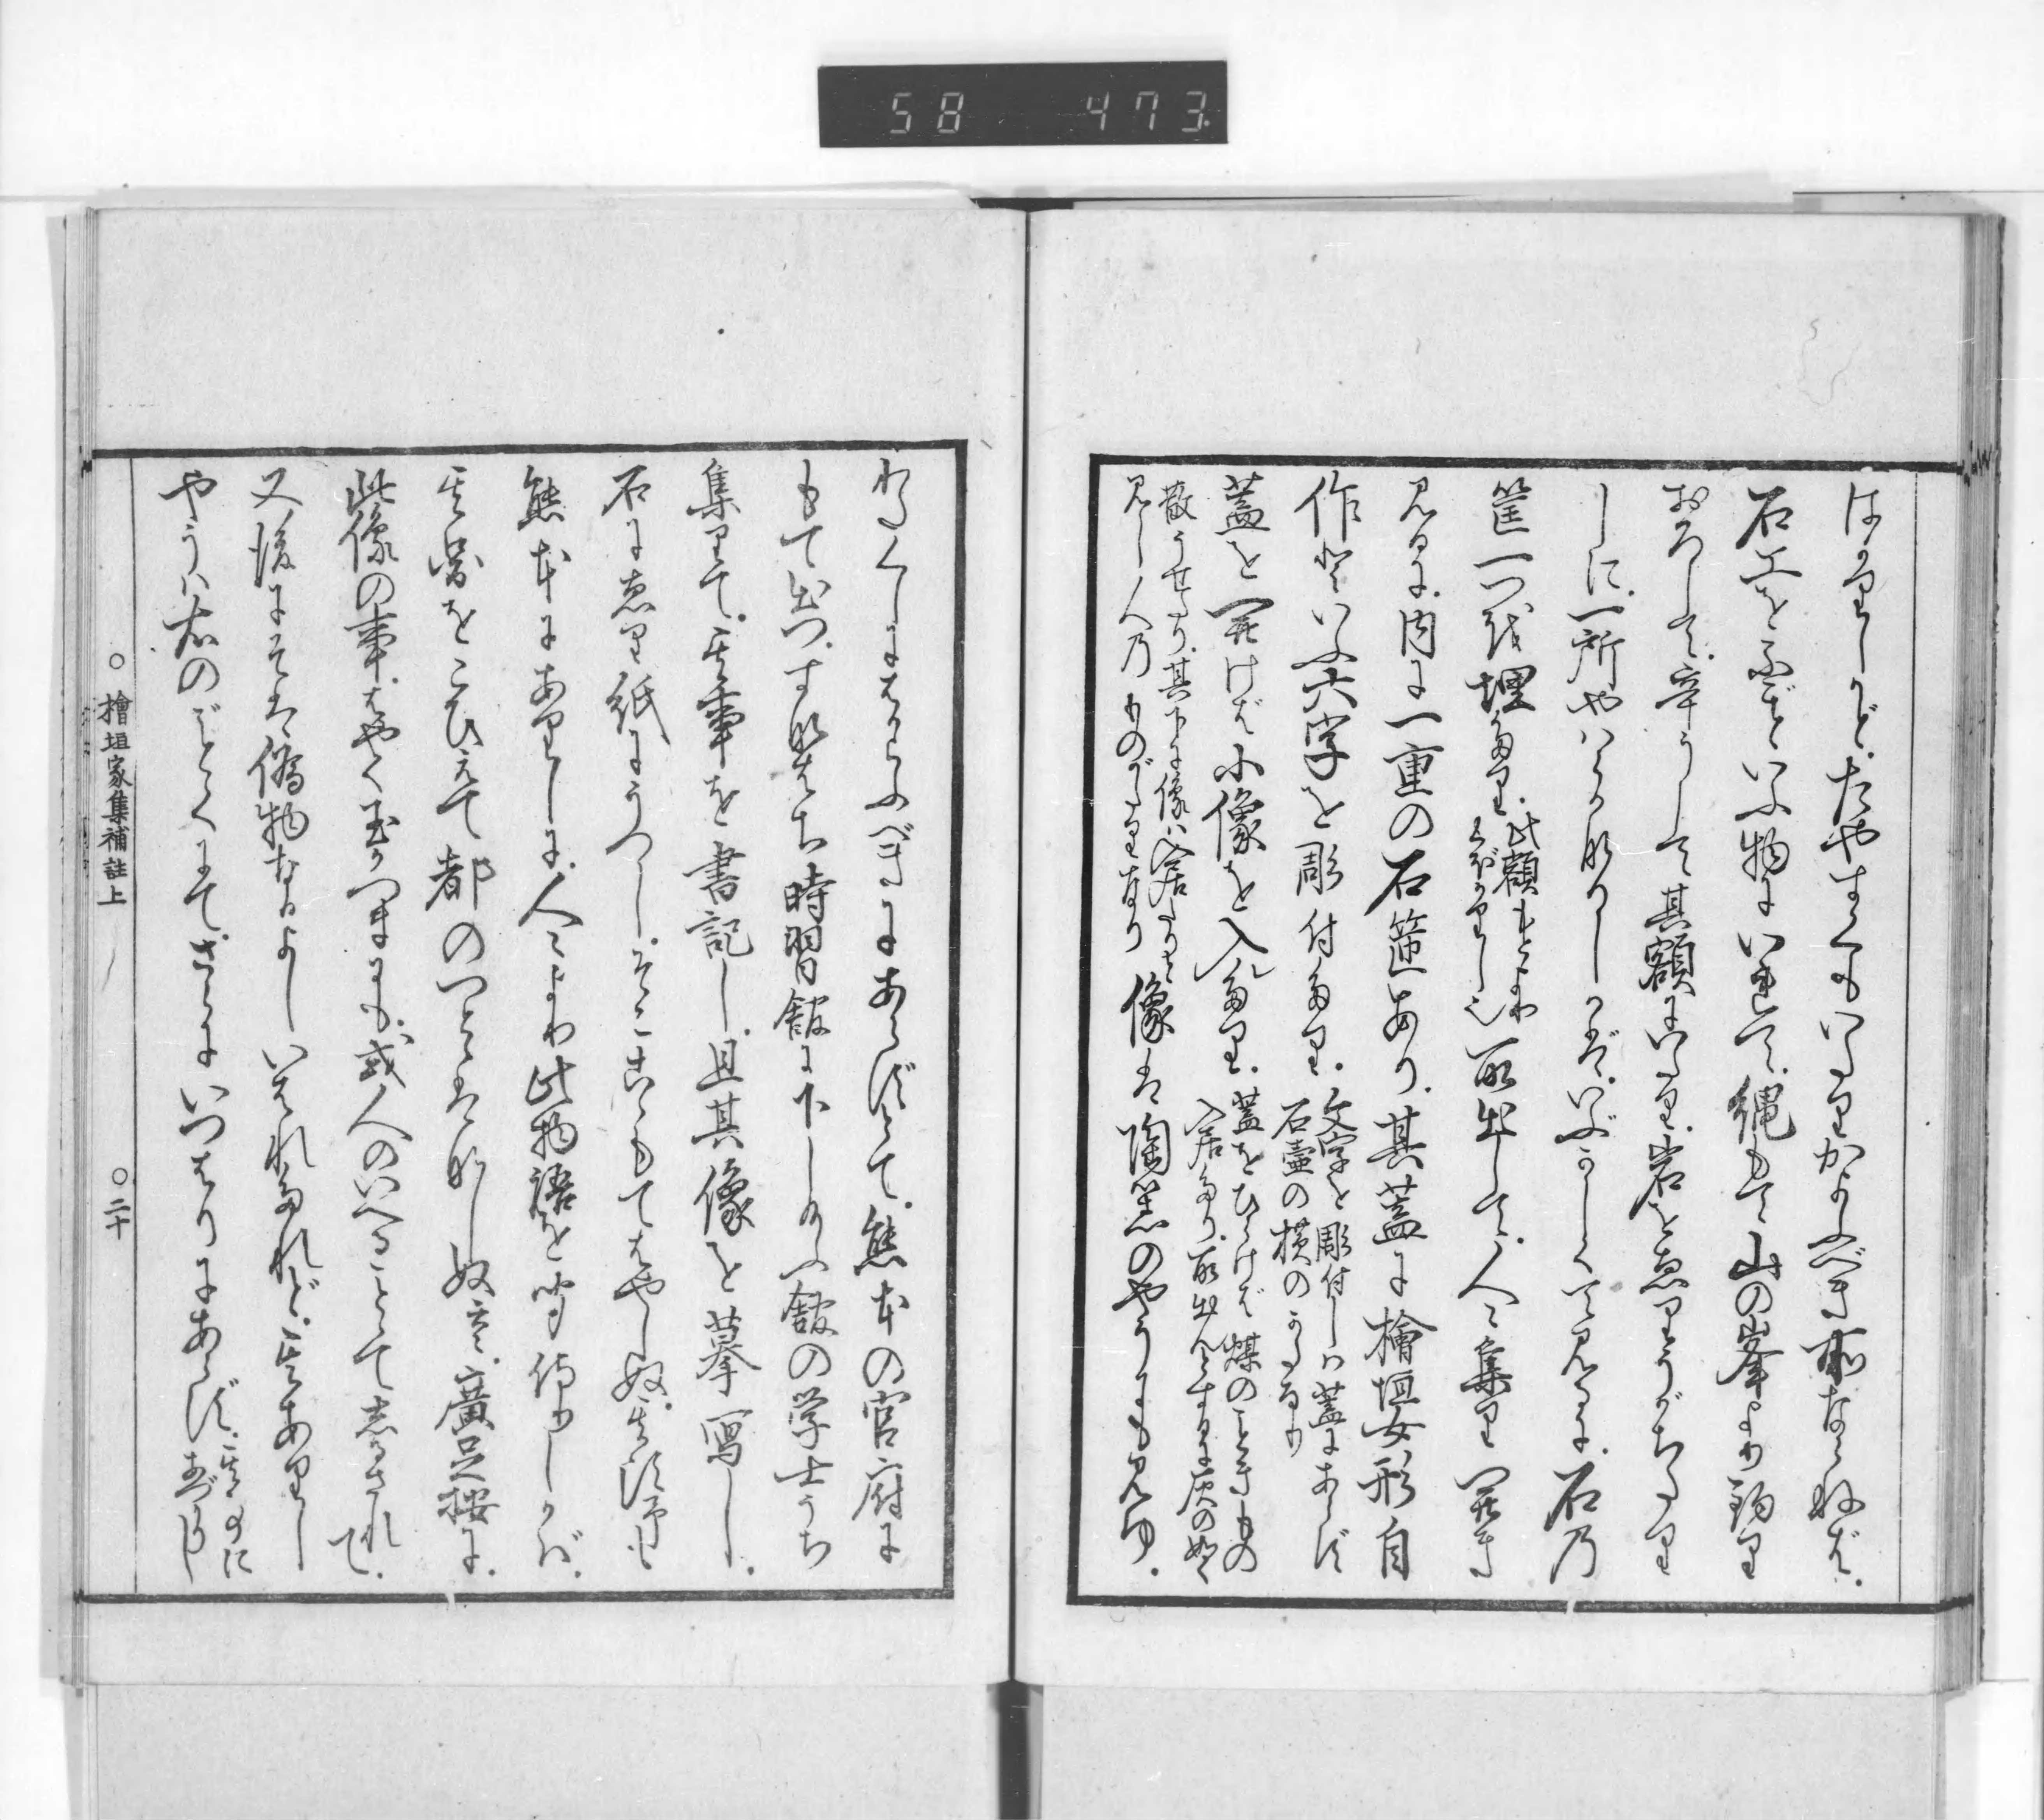 58 473
はありしかど、たやすくもいたりかよふべき所ならねば、
石工をふごといふ物にいれて、縄もて山の峯より釣り
おろして、辛うして其額にいたり、岩をゑりうがちたり
しに、一所やはらかなりしかば、いぶかしくて見るに、石乃
筐一つを埋たり、
此額もとより
くぼかりし也
取出して、人々集り開き
見るに、内に一重の石篋あり、其蓋に檜垣女形自
作といふ六字を彫付たり、
文字を彫付しは蓋にあらず
石壷の横のかたなり
蓋を開けば小像を入たり、
蓋をひらけば煤のごときもの
入居たり、取出んとするに灰の如く
散うせたり、其下に像は入居たりと
見し人乃ものがたりなり
像は陶器のやうにも見ゆ、
わたくしにはからふべきにあらずとて、熊本の官府に
もて出つ、すなはち時習館に下し給ふ、館の学士うち
集りて、其事を書記し、且其像を摹寫し、
石にゑり紙にうつし、そこここもてはやしぬ、其頃予も
熊本にありしに、人々より此物語を聞侍りしかば、
其図をこひえて都のつとにはなしぬ云々、廣足按に、
此像の事、はやく玉かつまにも、或人のいへることとて志るされて、
又後にそは偽物なるよしいはれたれど、其ありし
やうは右のごとくにて、さらにいつはりにあらず、
檜垣家集補註上
二十